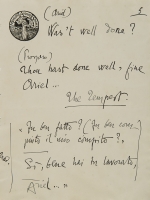 (Ariel)
Was't well done?
5
(Prospero)
Thou hast done well, fine
Ariel...
The Tempest.
"Ho ben fatto? (Ho ben com-
piuto il mio compito?"
Sì, bene hai tu lavorato,
Ariel..."